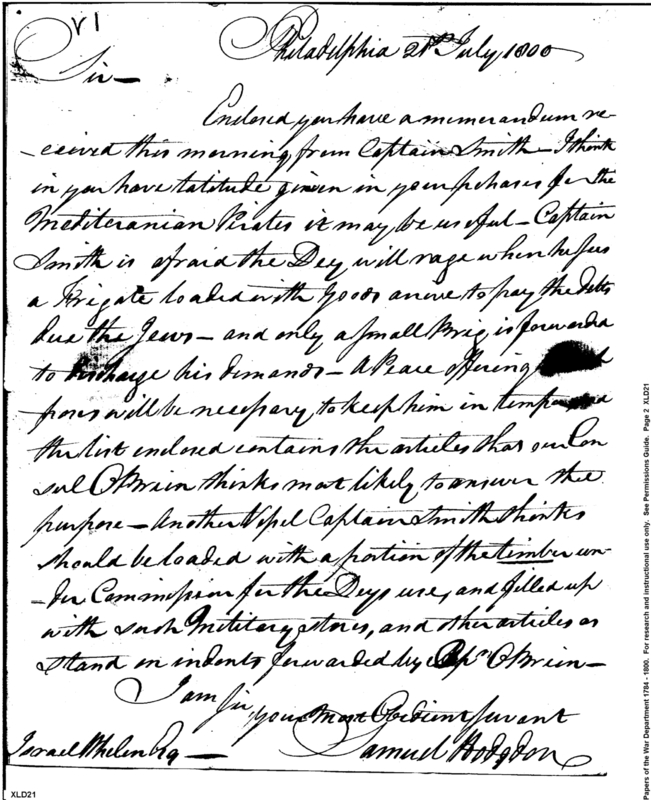 71
Philadelphia 21 July, 1800
Sir —
Enclosed you have a memorandum re-
-ceived this morning from Captain Smith — I think
in you have latitude given in your pchases for the
Mediteranian Pirates it may be useful — Captain
Smith is afraid the Dey will rage when he sees
a Frigate loaded with Goods arrive to pay the debts
due the Jews — and only a small Brig is forwarded
to discharge his demands — A Peace offering
-poses will be necessary to keep him in temper and
the list enclosed contains the articles that our Con
sul OBrien thinks most likely to answer the
purpose — Another Vessel Captain Smith thinks
should be loaded with a portion of the timber un-
-der Commission for the Deys use, and filled up
with such Military stores, and other articles as
stand on indents forwarded by OBrien —
I am Sir
your Most Obedient Servant
Israel Whelen Esq — Samuel Hodgdon
XLD21
Papers of the War Department 1784 - 1800. For research and instructional use only. See Permissions Guide. Page 2 XLD21